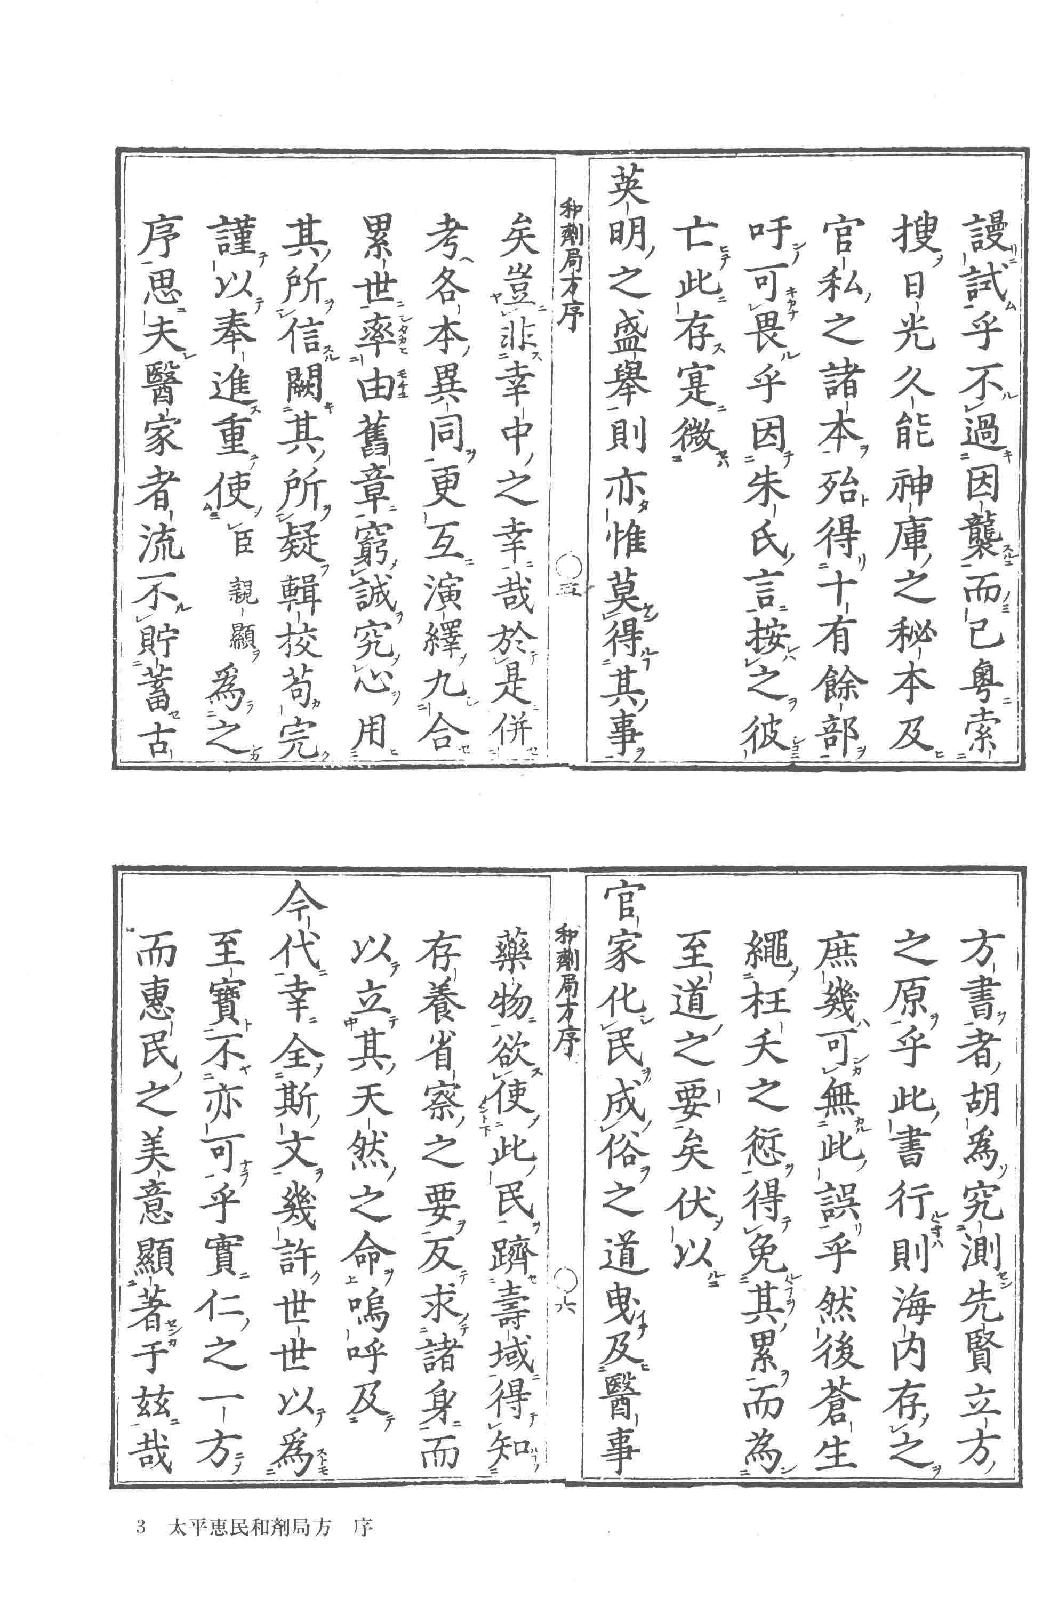 謾試乎不過因襲而已粤索
搜日光久能神庫之秘本及
官私之諸本殆得十有餘部
吁可畏乎因朱氏言按之彼
亡此存寔微
英明之盛舉則亦惟莫得其事
和劑局方序
五
矣豈非幸中之幸哉於是併
考各本異同更互演繹九合
累世率由舊章窮誠究心用
其所信闕其所疑輯校苟完
謹以奉進重使臣親顯爲之
序思夫醫家者流不貯蓄古
方書者胡爲究測先賢立方
之原乎此書行則海内存之
庶幾可無此誤乎然後蒼生
繩枉夭之愆得免其累而為
至道之要矣伏以
官家化民成俗之道曳及醫事
和劑局方序
六
藥物欲使此民躋壽域得知
存養省察之要反求諸身而
以立其天然之命嗚呼及
今代幸全斯文幾許世世以為
至寶不亦可乎實仁之一方
而惠民之美意顯著于玆哉
3 太平惠民和剤局方 序